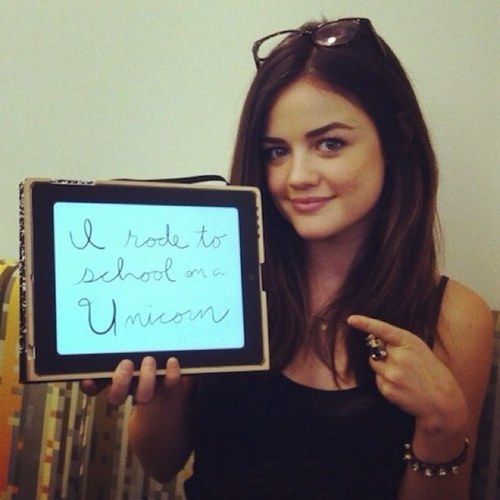 I rode to
school on a
Unicorn